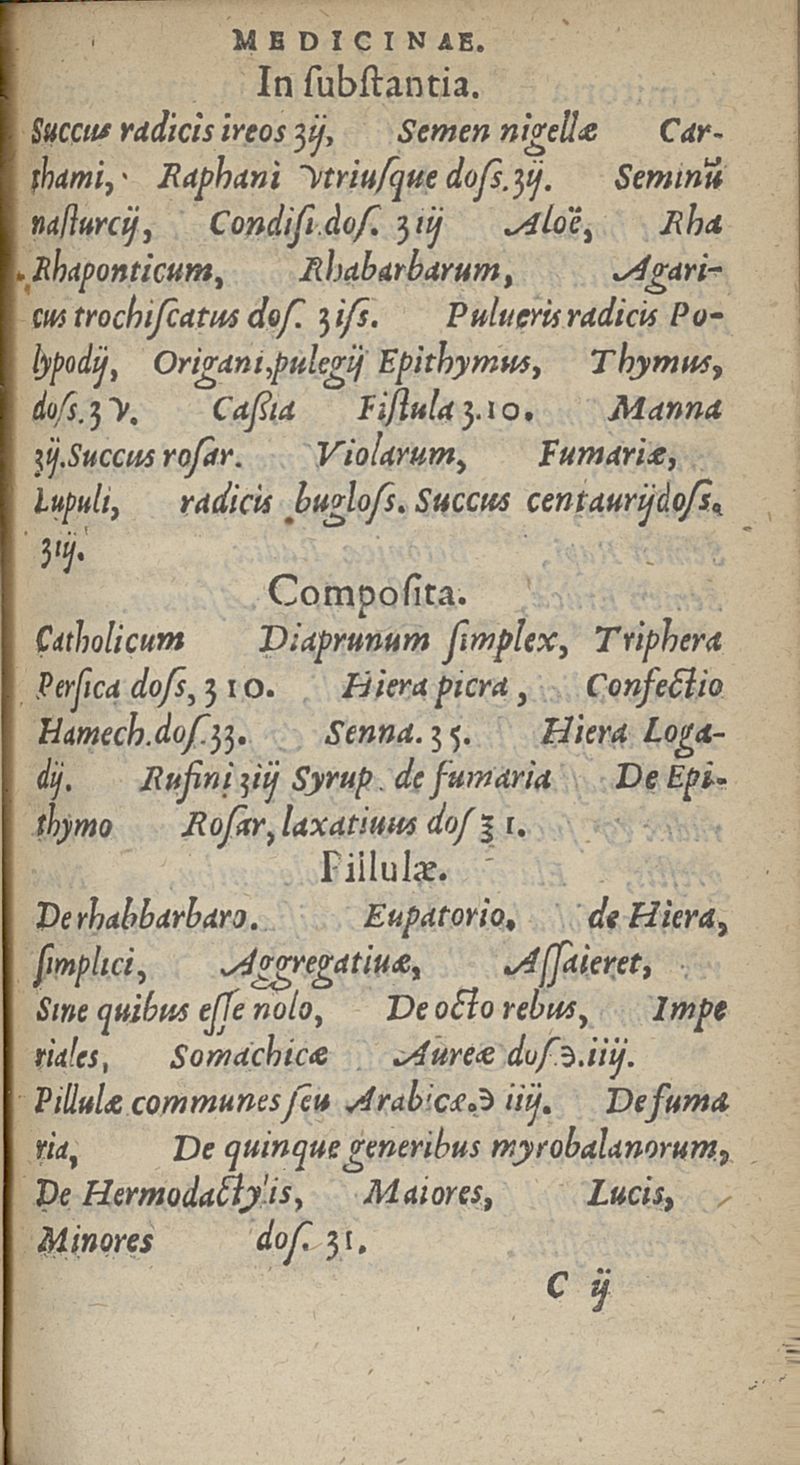 MEDICINAE.
In ſubſtantia.
Succus radicis ireos ʒij, Semen nigellæ Car-
thami, Raphani Vtriuſque doſs. ʒij. Seminũ
naſturcij, Condiſi.doſ. ʒiij Aloë, Rha
Rhaponticum, Rhabarbarum, Agari-
cus trochiſcatus doſ. ʒiſs. Pulueris radicis Po-
lypodij, Origani,pulegij Epithymus, Thymus,
doſs. ʒ V. Caſsia Fiſtula ʒ.10. Manna
ʒij.Succus roſar. Violarum, Fumariæ,
Lupuli, radicis bugloſs. Succus centaurij doſs.
ʒiij.
Compoſita.
Catholicum Diaprunum ſimplex, Triphera
Perſica doſs, ʒ 10. Hiera picra, Confectio
Hamech.doſ.ʒ3. Senna. ʒ 5. Hiera Loga-
dij. Rufini ʒiij Syrup. de fumaria De Epi-
thymo Roſar, laxatiuus doſ ℥ 1.
Pillulæ.
De rhabbarbaro. Eupatorio, de Hiera,
ſimplici, Aggregatiuæ, Aſſaieret,
Sine quibus eſſe nolo, De octo rebus, Impe
riales, Somachicæ Aureæ doſ.℈.iiij.
Pillulæ communes ſeu Arabicæ.℈ iiij. De fuma
ria, De quinque generibus myrobalanorum,
De Hermodactylis, Maiores, Lucis,
Minores doſ. ʒ1.
C ij